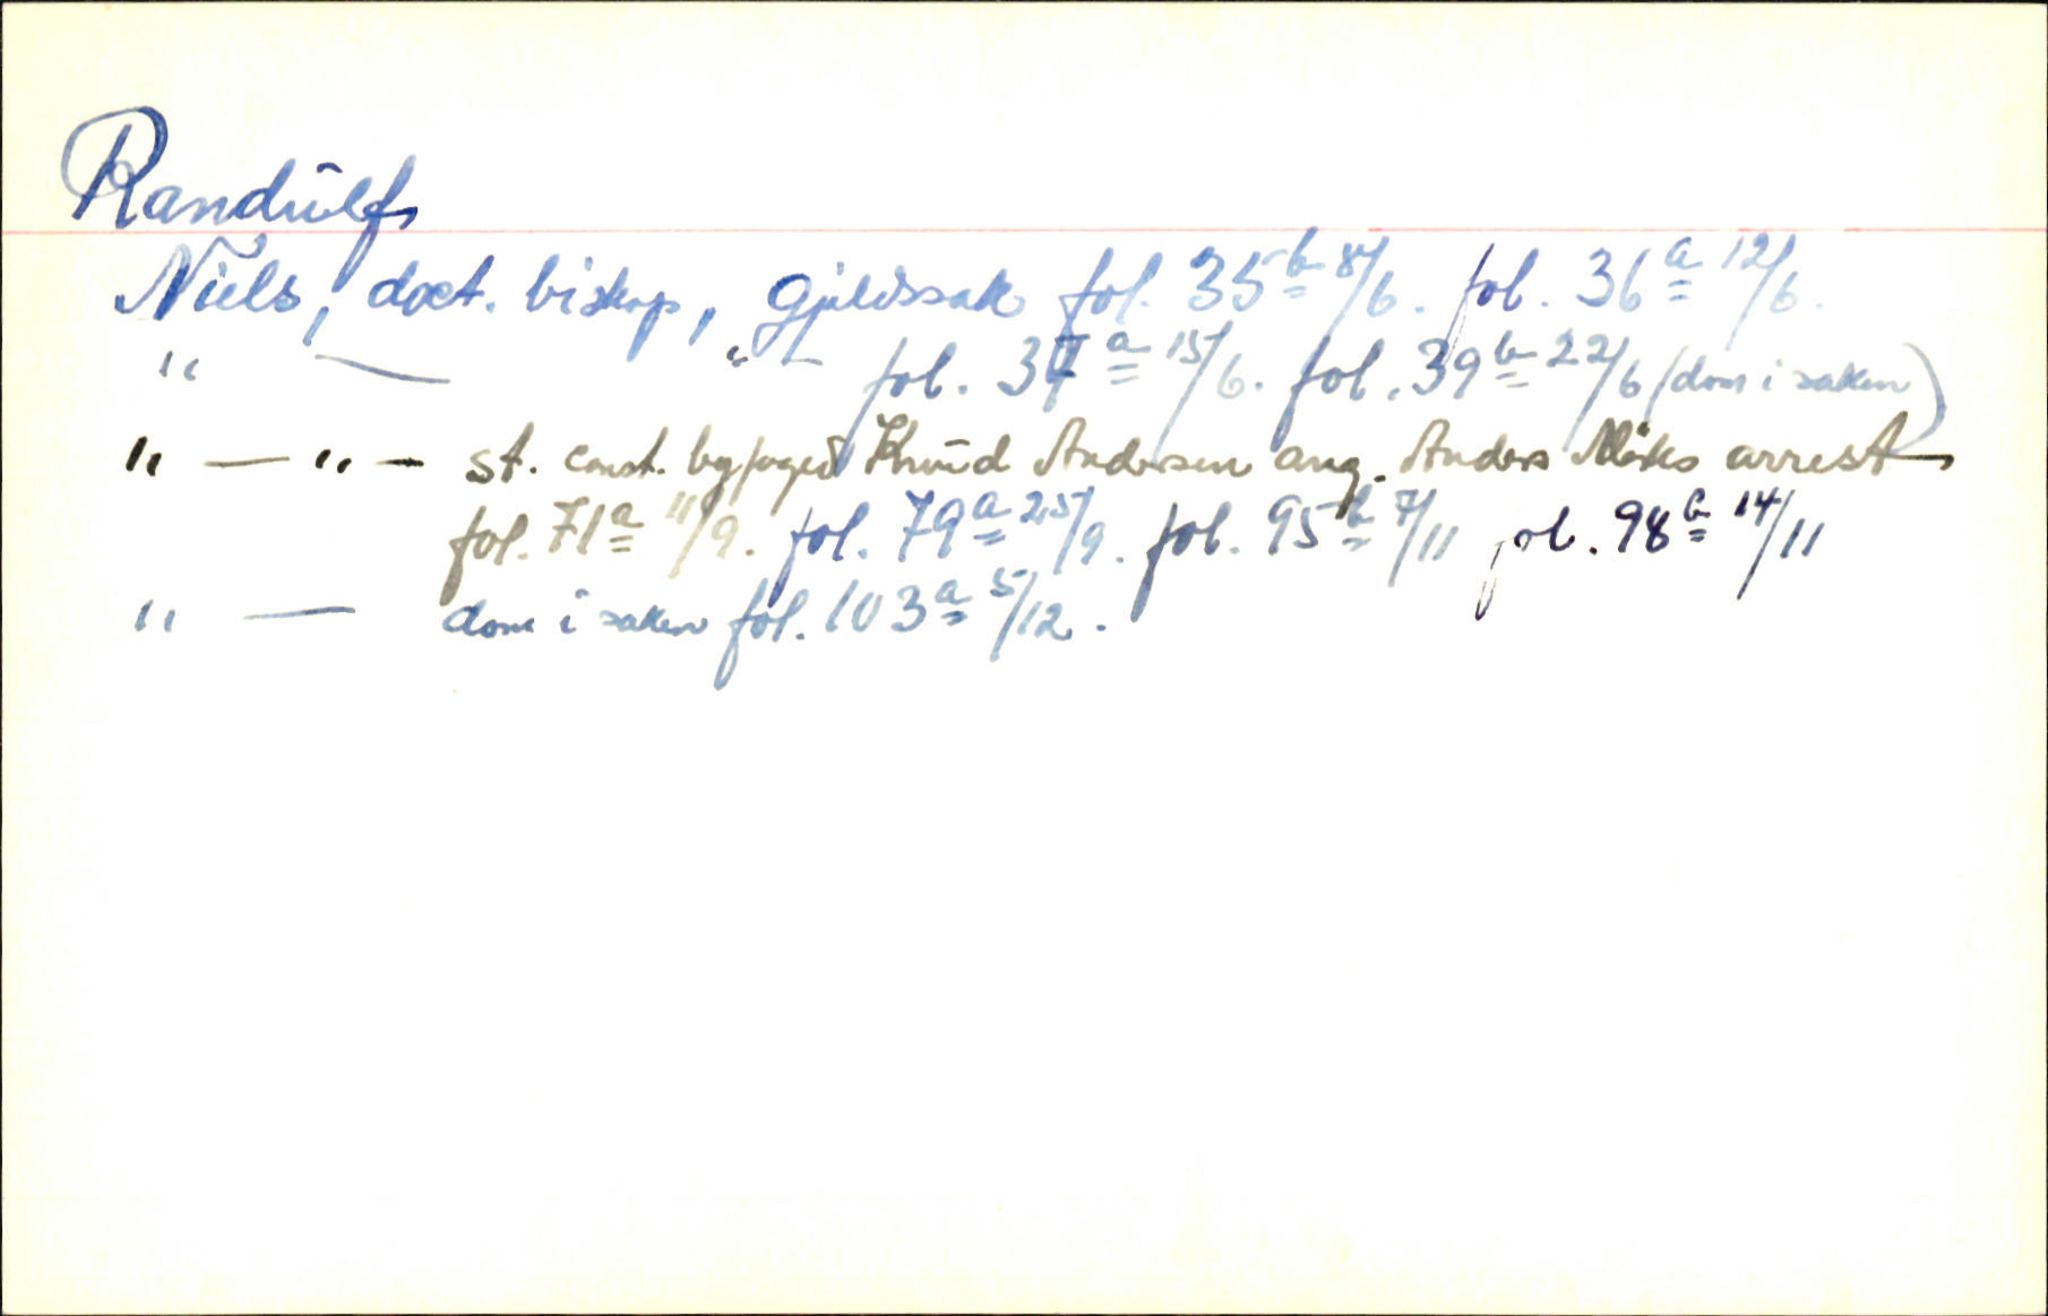 Randulf
Niels, doct. biskop, Gjældssak fol. 35 b 8/6. fol. 36 a 12/6.
" — " — fol. 37 a 15/6. fol. 39 b 22/6 (dom i saken)
" — " — st. const. byfoged Knud Andersen ang. Anders arrest
fol. 71 a 11/9. fol. 79 a 25/9. fol. 95 b 7/11 fol. 98 b 14/11
" — dom i saken fol. 103 a 5/12.